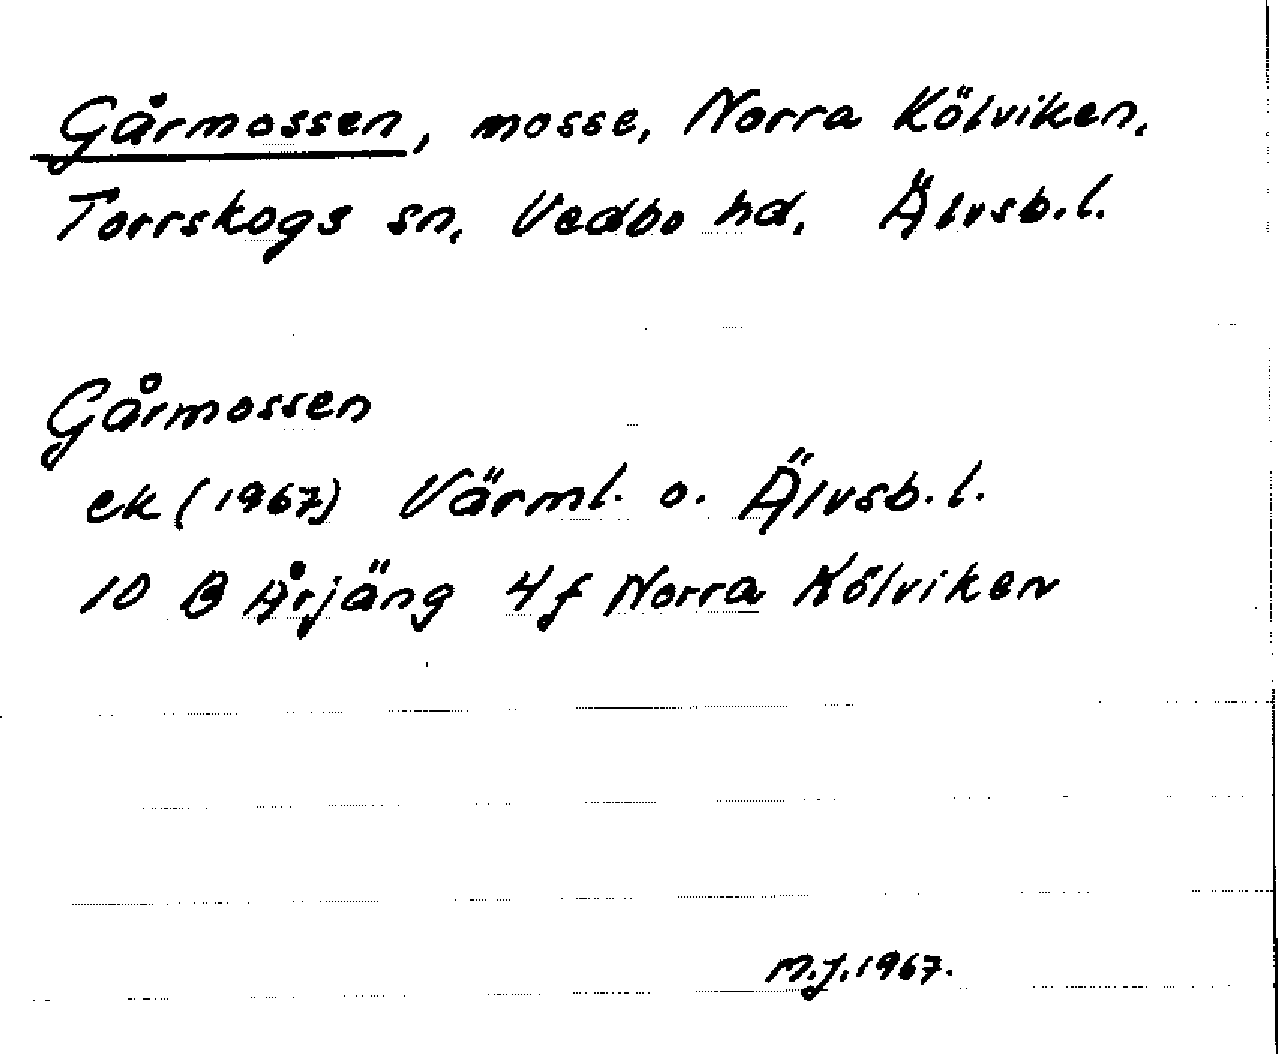 Gårmossen, mosse, Norra Kölviken,
Torrskogs sn, Vedbo hd, Älvsb.l.
Gårmossen
ek (1967) Värml. o. Älvsb.l.
10 B Årjäng 4f Norra Kölviken
M.J. 1967.